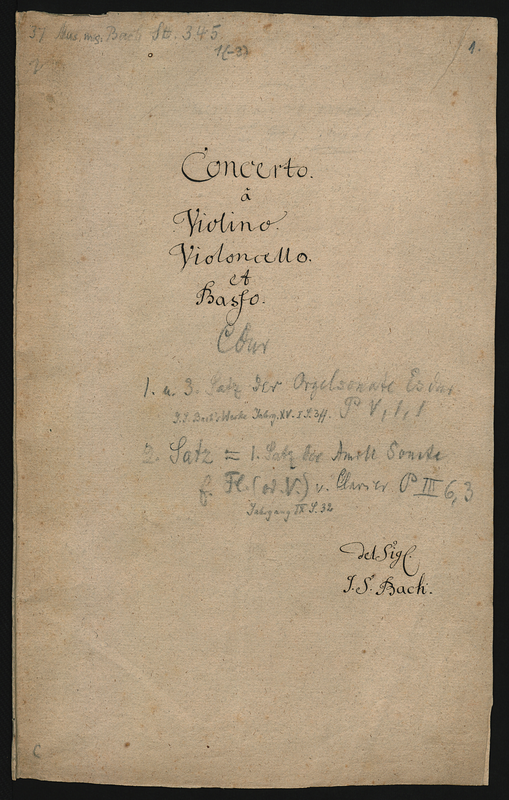 37 Mus. ms. Bach St. 345.
1(-3)
1.
Concerto.
à
Violino.
Violoncello.
et
Basso.
C dur
1. u. 3. Satz der Orgelsonate Es dur
J. S. Bach's Werke Jahrg. XV. S. 3 ff. P V, 1, 1
2. Satz = 1. Satz der Amoll Sonate
f. Fl. (od. V.) u. Clavier P III 6, 3
Jahrgang IX S. 32
del Sigr.
J. S. Bach.
C